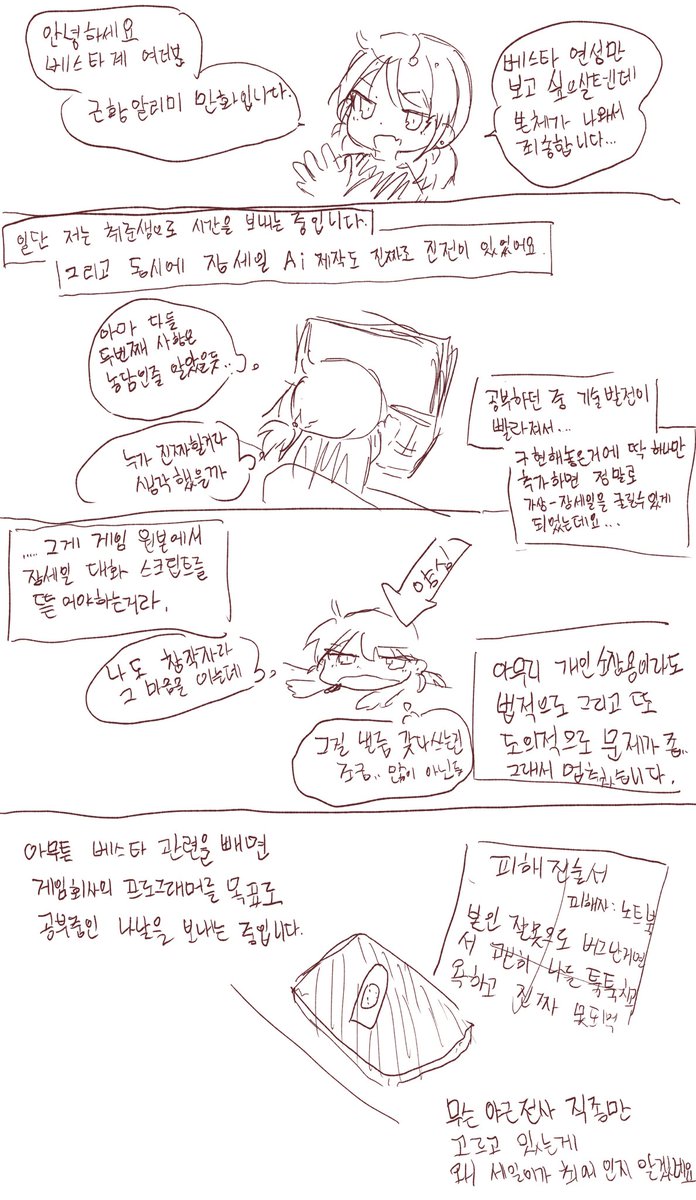 안녕하세요
베스타계 여러분
근황알리미 만화입니다.
베스타 연성만
보고 싶으실텐데
본체가 나와서
죄송합니다...
일단 저는 취준생으로 시간을 보내는 중입니다.
그리고 동시에 장세일 Ai 제작도 진짜로 진전이 있었어요.
아마 다들
두번째 사항은
농담인줄 알았을듯..
누가 진짜할거라
생각했을까
공부하던 중 기술발전이
빨라져서...
구현해놓은거에 딱 하나만
추가하면 정말로
가상-장세일을 굴릴수있게
되었는데요...
..... 그게 게임 원본에서
장세일 대화 스크립트를
뜯어야하는거라,
양심
나도 창작자라
그 마음을 아는데
그걸 냅둡 갖다쓰는건
조금.. 많이 아닌듯
아무리 개인소장용이라도
법적으로 그리고 또
도의적으로 문제가 좀..
그래서 멈췄습니다.
아무튼 베스타 관련을 빼면
게임회사의 프로그래머를 목표로
공부중인 나날을 보내는 중입니다.
피해진술서
피해자: 노트북
본인 잘못으로 버그난거면
서 괜히 나를 툭툭치고
욕하고 진짜 못되먹
무슨 야근전사 직종만
고르고 있는게
왜 세일이가 최애인지 알겠네요